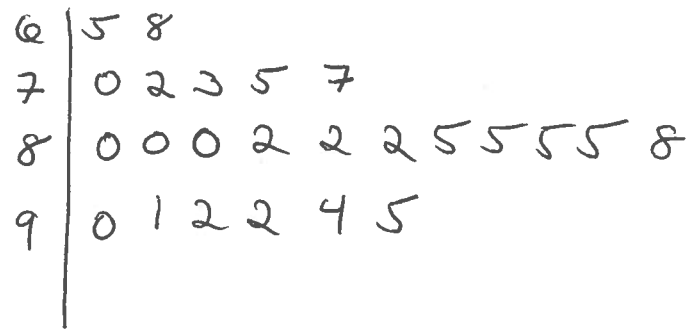 6 | 5 8
7 | 0 2 3 5 7
8 | 0 0 0 2 2 2 5 5 5 5 8
9 | 0 1 2 2 4 5